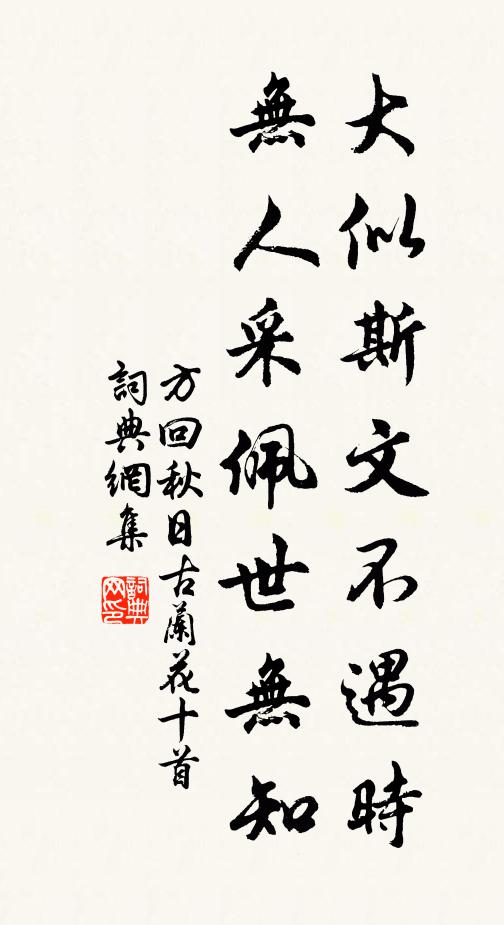 大似斯文不遇時
無人采佩世無知
方回秋日古蘭花十首
詞典網集
詞典網印